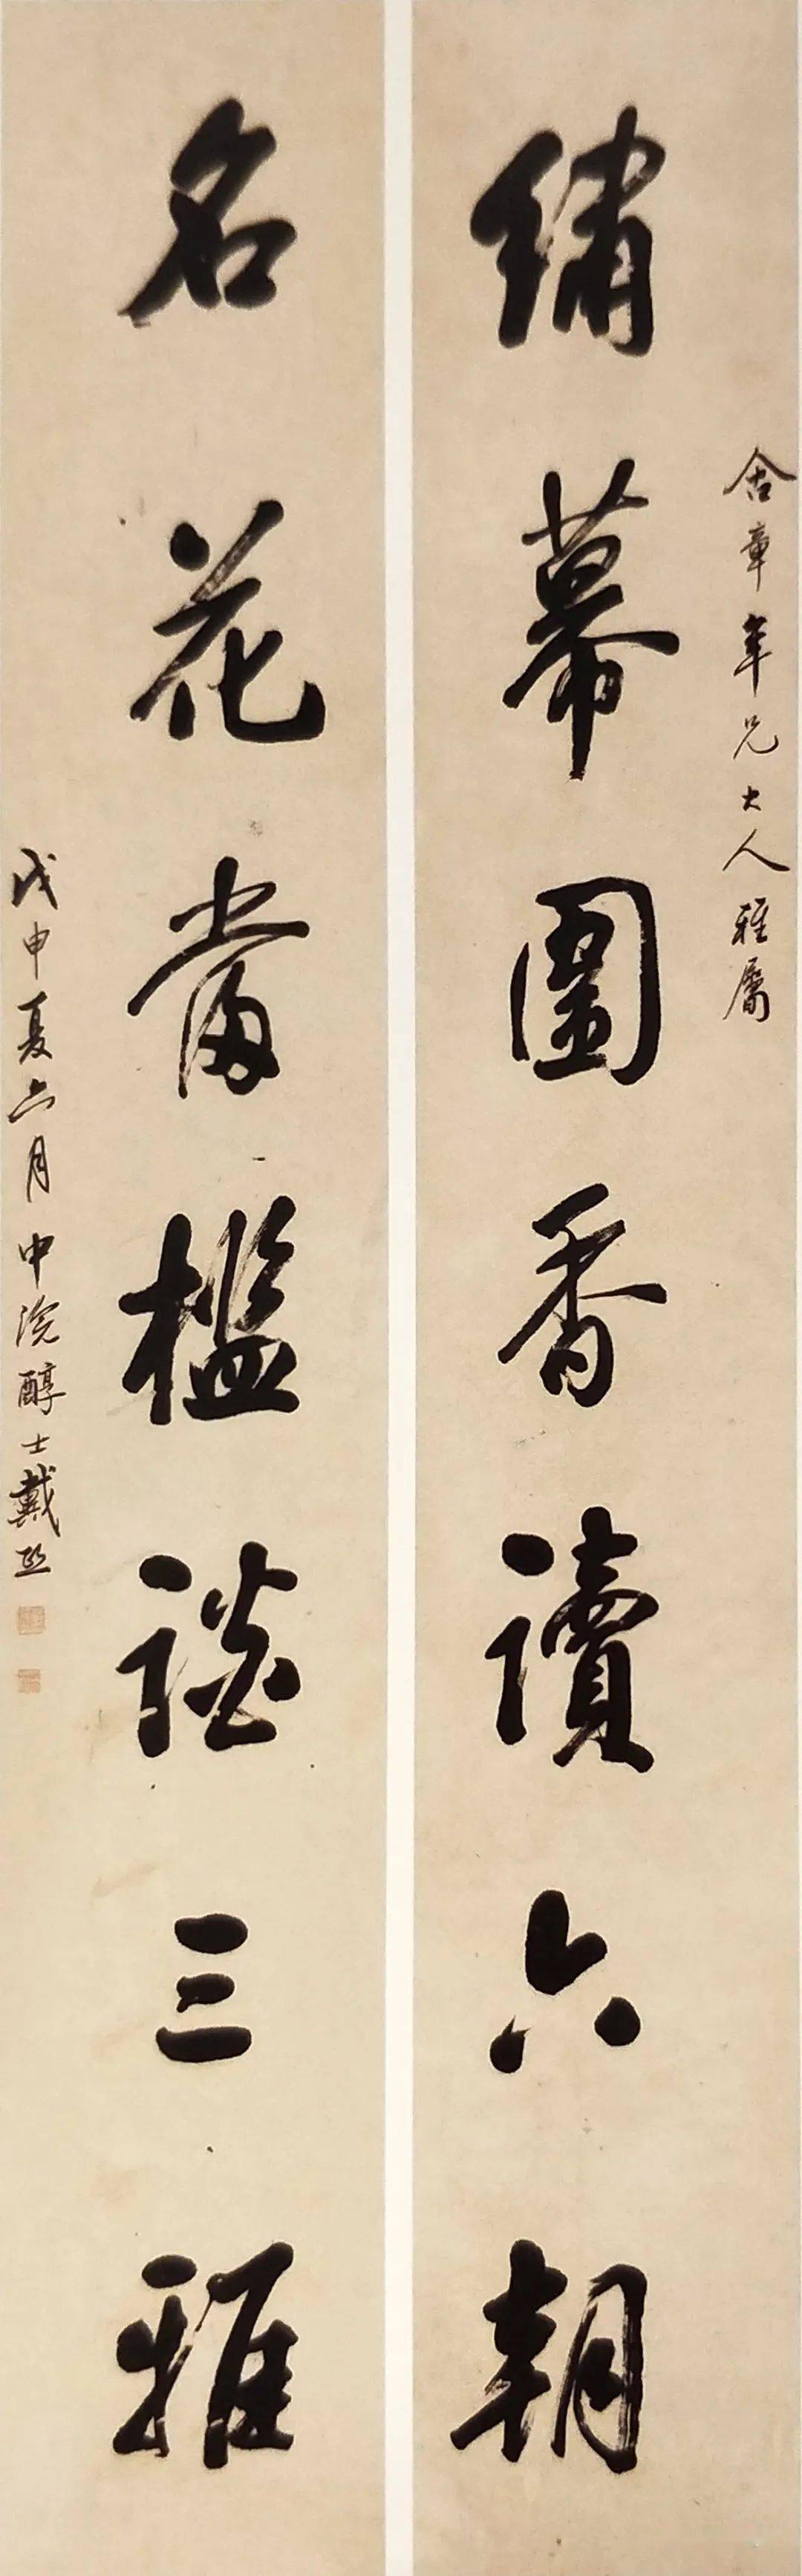 舍章年兄大人雅屬
繡幕圍香讀六朝
名花當檻談三雅
戊申夏六月中浣醇士戴熙